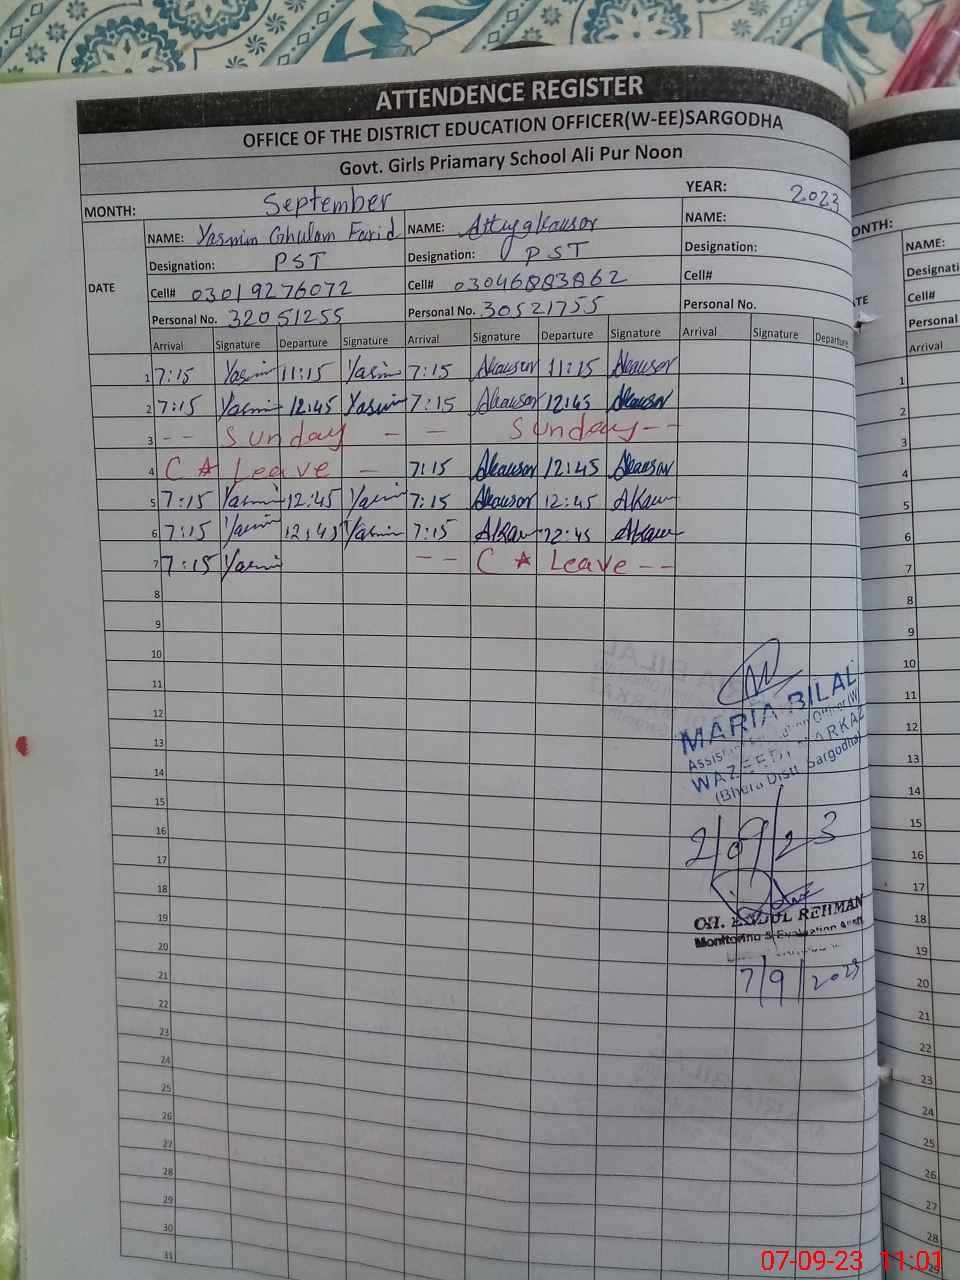 ATTENDENCE REGISTER
OFFICE OF THE DISTRICT EDUCATION OFFICER(W-EE)SARGODHA
Govt. Girls Priamary School Ali Pur Noon
MONTH: September YEAR: 2023
DATE
NAME: Yasmin Ghulam Farid NAME: NAME:
Designation: PST Designation: PST Designation:
Cell# 03019276072 Cell# 03046883862 Cell#
Personal No. 32051255 Personal No. 30521755 Personal No.
Arrival Signature Departure Signature Arrival Signature Departure Signature Arrival Signature Departure
1 7:15 Yasmin 11:15 Yasmin 7:15 Akausor 11:15 Akausor
2 7:15 Yasmin 12:45 Yasmin 7:15 Akausor 12:45 Akausor
3 -- Sunday - - Sunday --
4 C Leave - 7:15 Akausor 12:45 Akausor
5 7:15 Yasmin 12:45 Yasmin 7:15 Akausor 12:45 AKau
6 7:15 Yasmin 12:45 Yasmin 7:15 AKau 12:45 AKau
7 7:15 Yasmin -- C Leave --
8
9
10
11
12
13
14
15
16
17
18
19
20
21
22
23
24
25
26
27
28
29
30
31
MARIA BILAL
Officer (W)
MARKAZ
(Bhera Distt. Sargodha)
2/09/23
CH. REHMAN
Monitoring & Evaluation
7/9/2023
ONTH:
NAME:
Designati
TE
Cell#
Personal
Arrival
1
2
3
4
5
6
7
8
9
10
11
12
13
14
15
16
17
18
19
20
21
22
23
24
25
26
27
28
29
07-09-23 11:01